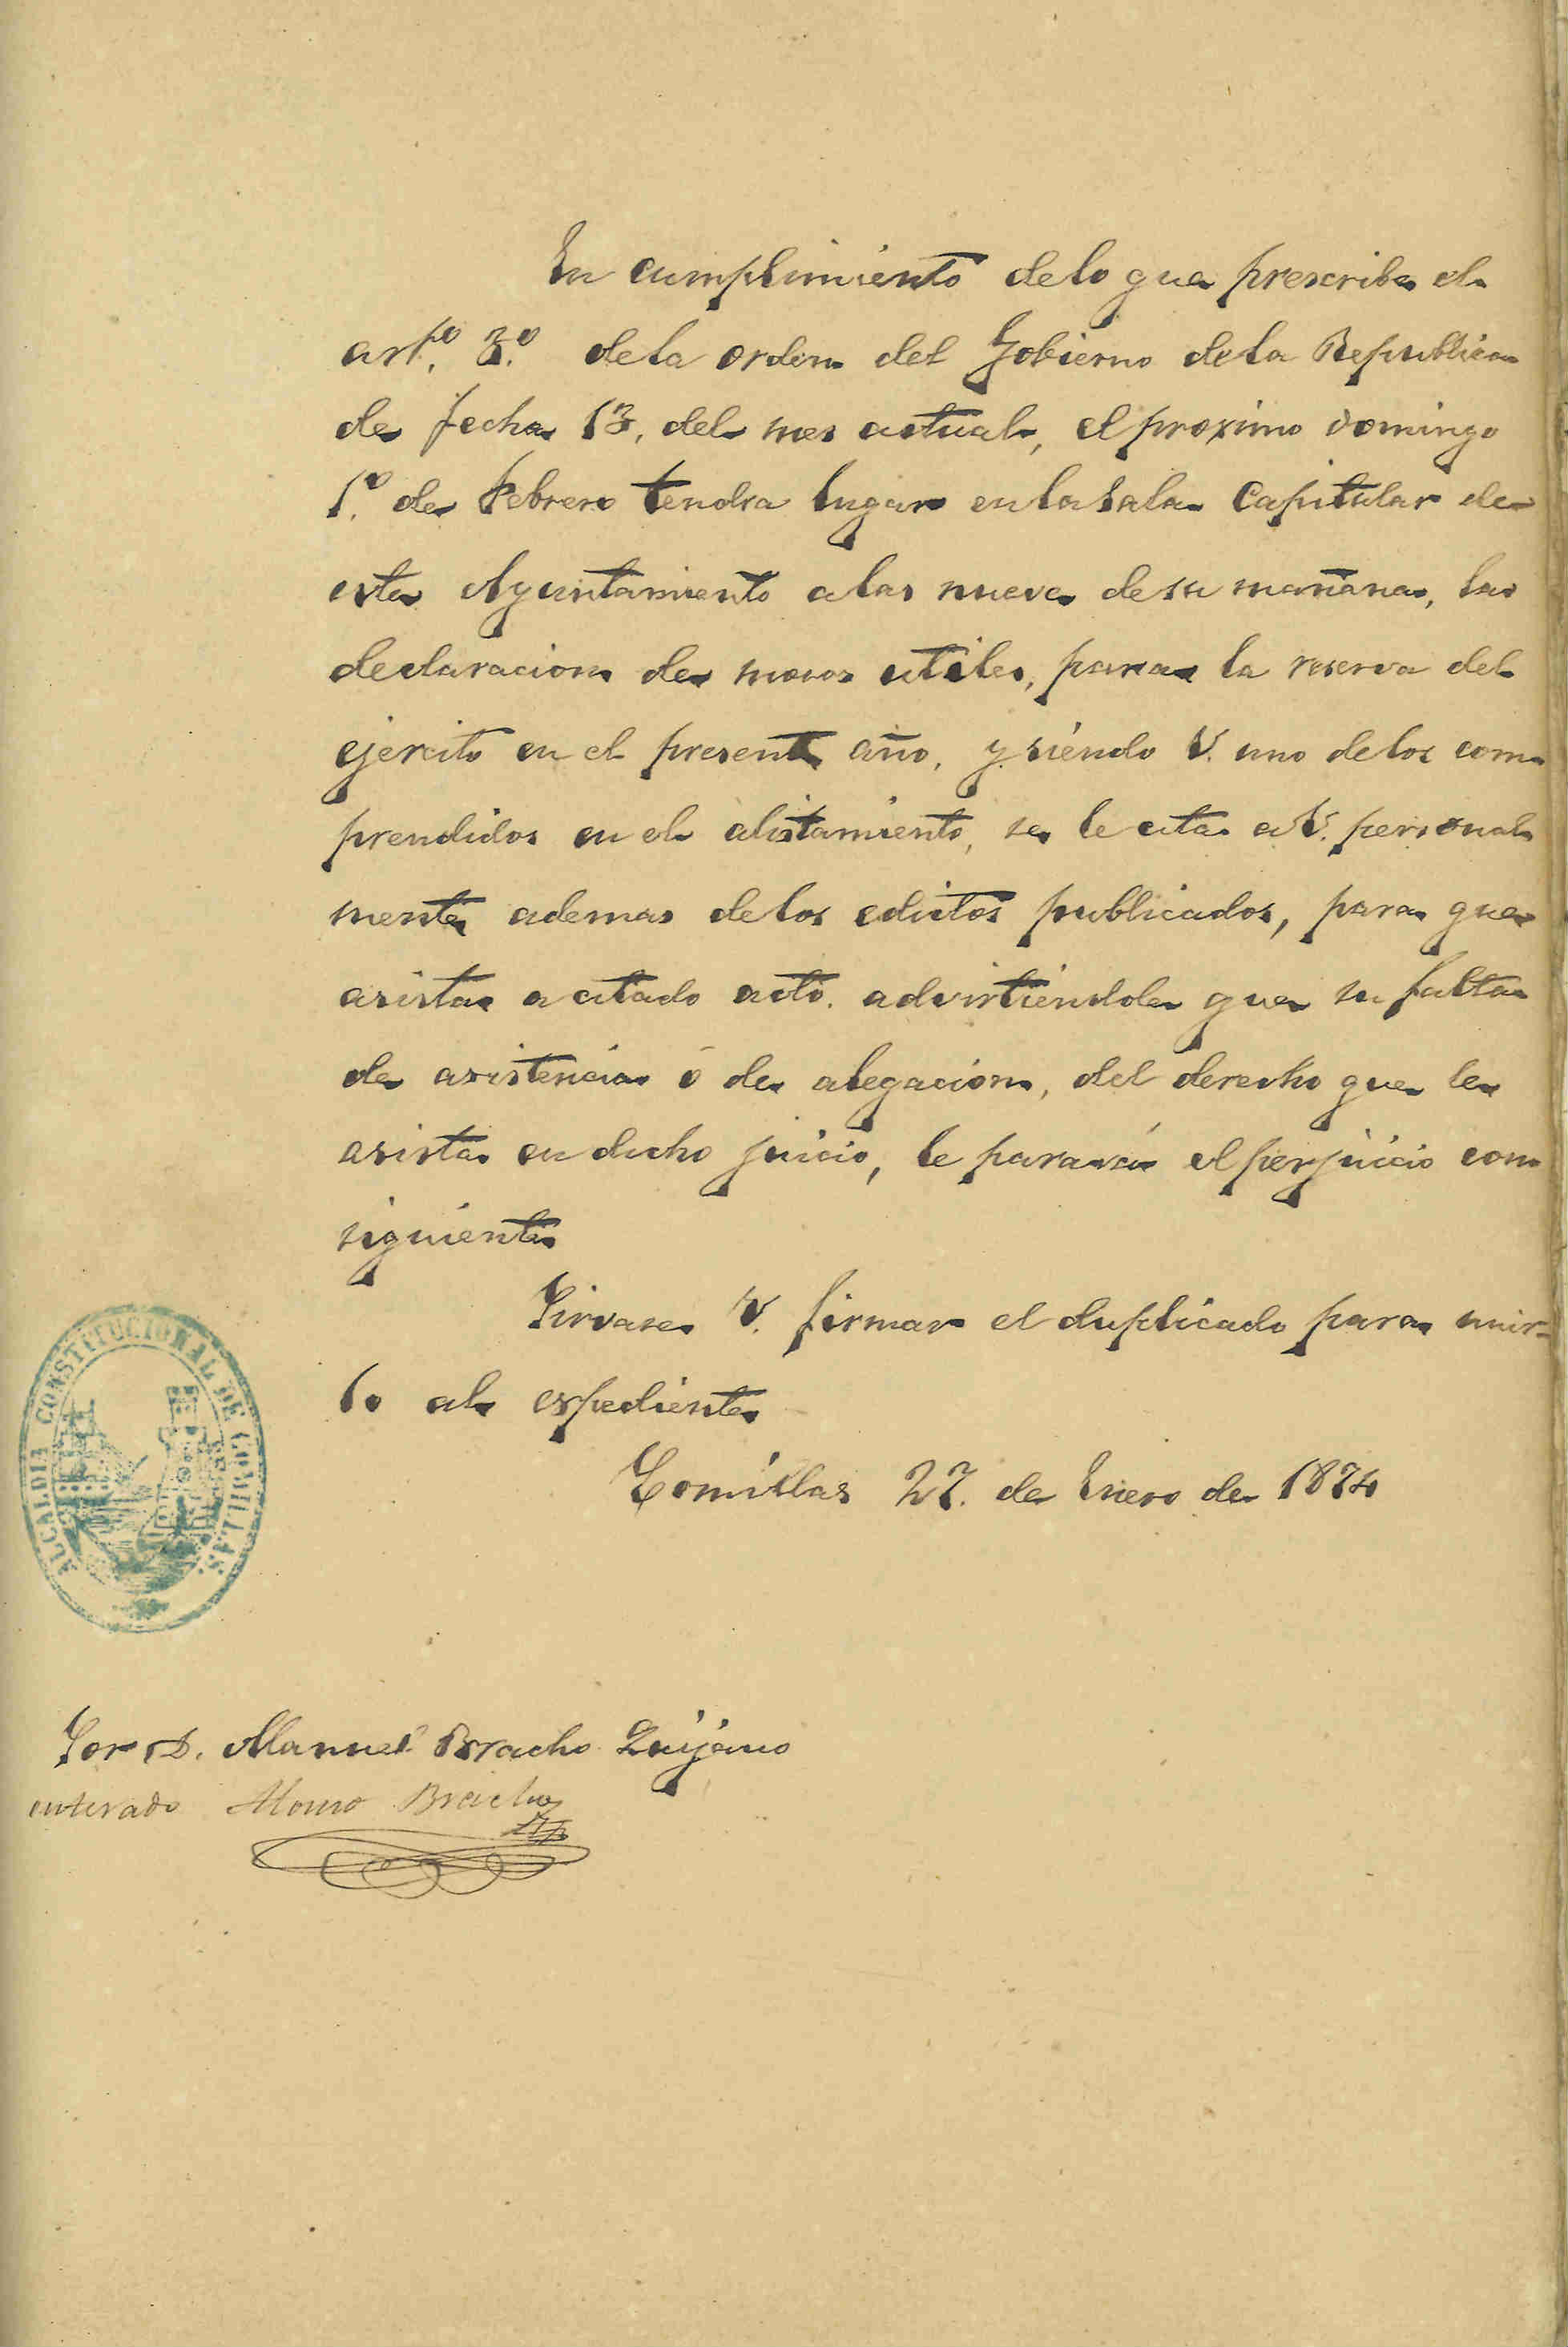 En cumplimiento de lo que prescribe el
art.º 3.º de la orden del Gobierno de la Republica
de fecha 13, del mes actual, el proximo domingo
1.º de Febrero tendra lugar en la Sala Capitular de
este Ayuntamiento a las nueve de su mañana, la
declaracion de mozos utiles, para la reserva del
ejercito en el presente año, y siendo V. uno de los com
prendidos en el alistamiento, se le cita a V. personal
mente ademas de los edictos publicados, para que
asista a citado acto. advirtiéndole que su falta
de asistencia ó de alegacion, del derecho que le
asista en dicho juicio, le parará el perjuicio con
siguiente
Sirvase V. firmar el duplicado para unir-
lo al espediente
Comillas 27. de Enero de 1874
ALCALDIA CONSTITUCIONAL DE COMILLAS
Sor D. Manuel Bracho Quijano
enterado Bracho